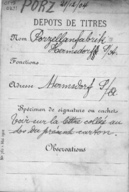 PORZ
DEPOTS DE TITRES
Nom Porzellanfabrik
Hermsdorff S/A
Fonctions
Adresse Hermsdorf S/A
Spécimen de signature ou cachets
Voir la lettre collée au
dos du présent carton.
Observations